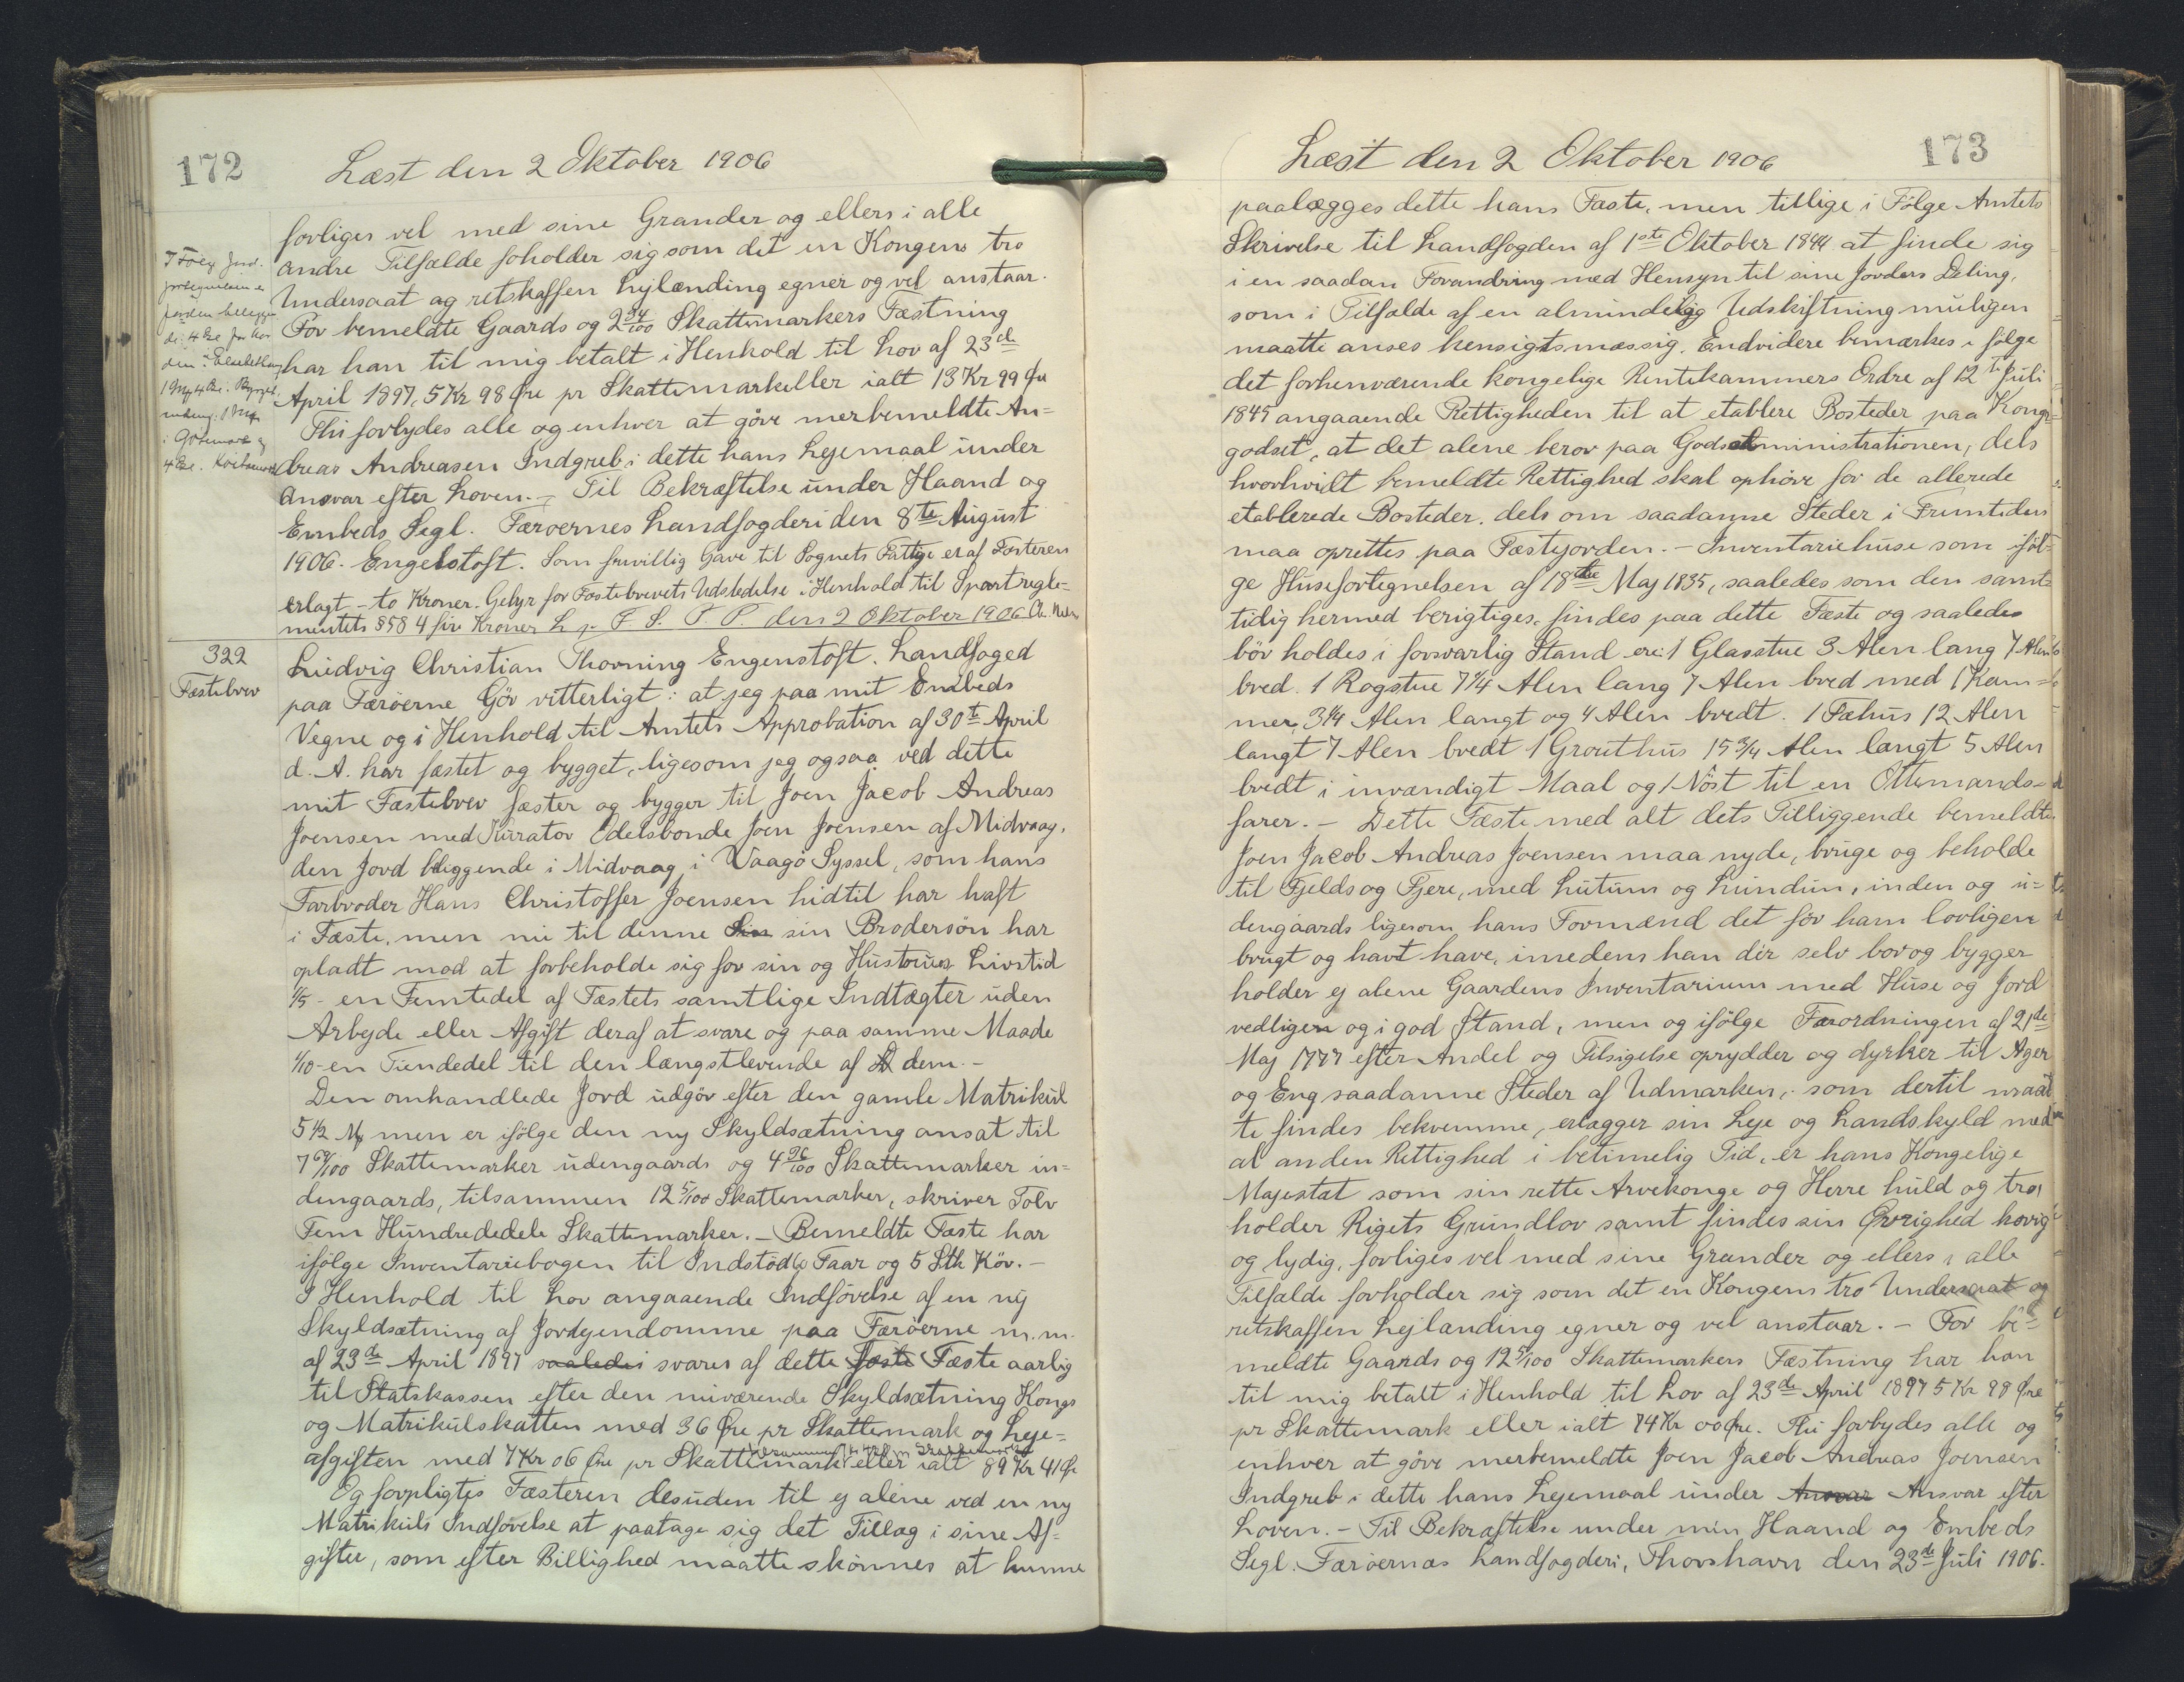 172
Læst den 2 Oktober 1906
forliges vel med sine Grander og ellers i alle
andre Tilfælde foholder sig som det en Kongens tro
Undersaat og retskaffen Lejlænding egner og vel anstaar.
For bemeldte Gaards og 2 34/100 Skattemarkers Fæstning
har han til mig betalt i Henhold til Lov af 23de
April 1897, 5 Kr 98 Øre pr Skattemark eller ialt 13 Kr 99 Øre
Thi forbydes alle og enhver at gøre merbemeldte An=
dreas Andreasen Indgreb i dette hans Lejemaal under
Ansvar efter Loven. – Til Bekræftelse under Haand og
Embeds Segl. Færøernes Landfogderi den 8te August
1906. Engelstoft. Som frivillig Gave til Sognets Fattige er af Fæsteren
erlagt – to Kroner. Gebyr for Fæstebrevets Udstedelse i Henhold til Sportregle-
mentets § 58 4 fire Kroner L. p. F. S. T. P. den 2 Oktober 1906
I Følge Jord-
fortegnelsen er
Jorden beliggen
de: 4 Gl
1 Mk 4 Gl i
1 Mk
i
4 Gl.
322
Fæstebrev
Ludvig Christian Thorning Engenstoft. Landfoged
paa Færøerne Gør vitterligt: at jeg paa mit Embeds
Vegne og i Henhold til Amtets Approbation af 30te April
d. A. har fæstet og bygget, ligesom jeg ogsaa ved dette
mit Fæstebrev fæster og bygger til Joen Jacob Andreas
Joensen med Kurator Odelsbonde Joen Joensen af Midvaag,
den Jord beliggende i Midvaag i Vaagø Syssel, som hans
Farbroder Hans Christoffer Joensen hidtil har haft
i Fæste, men nu til denne sin Brodersøn har
opladt mod at forbeholde sig for sin og Hustrues Livstid
1/5 - en Femtedel af Fæstets samtlige Indtægter uden
Arbejde eller Afgift deraf at svare og paa samme Maade
1/10 - en Tiendedel til den længstlevende af dem. –
Den omhandlede Jord udgør efter den gamle Matrikul
5 1/2 Mk men er ifølge den ny Skyldsætning ansat til
7 09/100 Skattemarker udengaards og 4 96/100 Skattemarker in=
dengaards, tilsammen 12 5/100 Skattemarker, skriver Tolv
Fem Hundrededele Skattemarker. – Bemeldte Fæste har
ifølge Inventariebogen til Indstød 6 Faar og 5 Stk Køer. –
I Henhold til Lov angaaende Indførelse af en ny
Skyldsætning af Jordejendomme paa Færøerne m.m.
af 23de April 1897 saaledes svares af dette fæste Fæste aarlig
til Statskassen efter den nuværende Skyldsætning Kongs
og Matrikulskatten med 36 Øre pr Skattemark og Leje-
afgiften med 7 Kr 06 Øre pr Skattemark eller ialt 89 Kr 41 Øre
Og forpligtes Fæsteren desuden til ej alene ved en ny
Matrikuls Indførelse at paatage sig det Tillæg i sine Af=
gifter, som efter Billighed maatte skønnes at kunne
173
Læst den 2 Oktober 1906
paalægges dette hans Fæste, men tillige i Følge Amtets
Skrivelse til Landfogden af 1ste Oktober 1844 at finde sig
i en saadan Forandring med Hensyn til sine Jorders Deling,
som i Tilfælde af en almindelig Udskiftning muligen
maatte anses hensigtsmæssig. Endvidere bemærkes i følge
det forhenværende kongelige Rentekammers Ordre af 12te Juli
1845 angaaende Rettigheden til at etablere Bosteder paa Konge=
godset, at det alene beror paa Godsadministrationen, dels
hvorhvidt bemeldte Rettighed skal ophøre for de allerede
etablerede Bosteder. dels om saadanne Steder i Fremtiden
maa oprettes paa Fæstejorden. – Inventariehuse som iføl=
ge Husefortegnelsen af 18de Maj 1835, saaledes som den samt=
tidig hermed berigtiges, findes paa dette Fæste og saaledes
bør holdes i forsvarlig Stand ere: 1 Glasstue 3 Alen lang 7 Alen
bred. 1 Rogstue 7 1/4 Alen lang 7 Alen bred med 1 Kam=
mer 3 1/4 Alen langt og 4 Alen bredt. 1 Fæhus 12 Alen
langt 7 Alen bredt 1 Grouthus 15 3/4 Alen langt 5 Alen
bredt i invændigt Maal og 1 Nøst til en Ottemands=
farer. – Dette Fæste med alt dets Tilliggende bemeldte
Joen Jacob Andreas Joensen maa nyde, bruge og beholde
til Fjelds og Fjere, med Lutum og Lundum, inden og u=
dengaards ligesom hans Formænd det før ham lovligen
brugt og havt have, imedens han dér selv bor og bygger
holder ej alene Gaardens Inventarium med Huse og Jord
vedligen og i god Stand, men og ifølge Færordningen af 21de
Maj 1777 efter Andel og Tilsigelse oprydder og dyrker til Ager
og Eng saadanne Steder af Udmarken, som dertil maat
te findes bekvemme, erlægger sin Leje og Landskyld med
al anden Rettighed i betimelig Tid, er hans Kongelige
Majestæt som sin rette Arvekonge og Herre huld og tro,
holder Rigets Grundlov samt findes sin Øvrighed hørig
og lydig, forliges vel med sine Grander og ellers i alle
Tilfælde forholder sig som det en Kongens tro Undersaat og
retskaffen Lejlænding egner og vel anstaar. – For be=
meldte Gaards og 12 5/100 Skattemarkers Fæstning har han
til mig betalt i Henhold til Lov af 23de April 1897 5 Kr 98 Øre
pr Skattemark eller ialt 74 Kr 00 Øre. Thi forbydes alle og
enhver at gøre merbemeldte Joen Jacob Andreas Joensen
Indgreb i dette hans Lejemaal under Ansvar Ansvar efter
Loven. – Til Bekræftelse under min Haand og Embeds
Segl. Færøernes Landfogderi, Thorshavn den 23de Juli 1906.